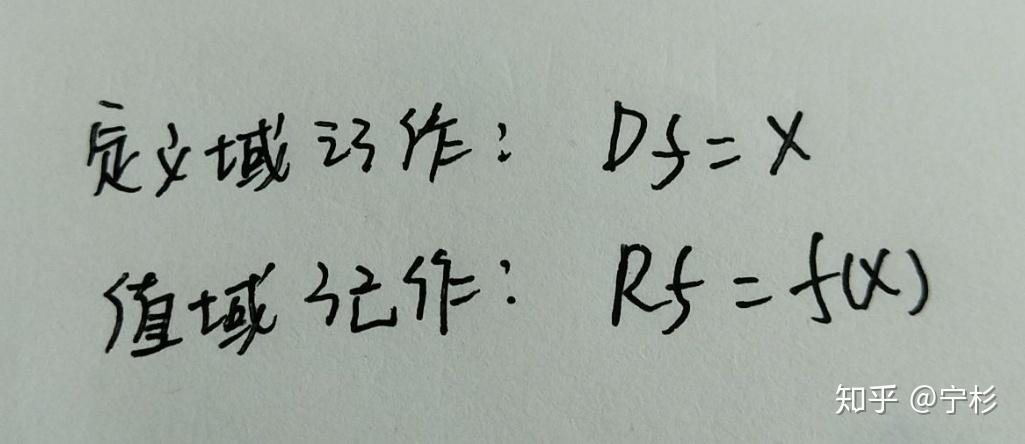 定义域记作： Df = X
值域记作： Rf = f(X)
知乎 @宁杉